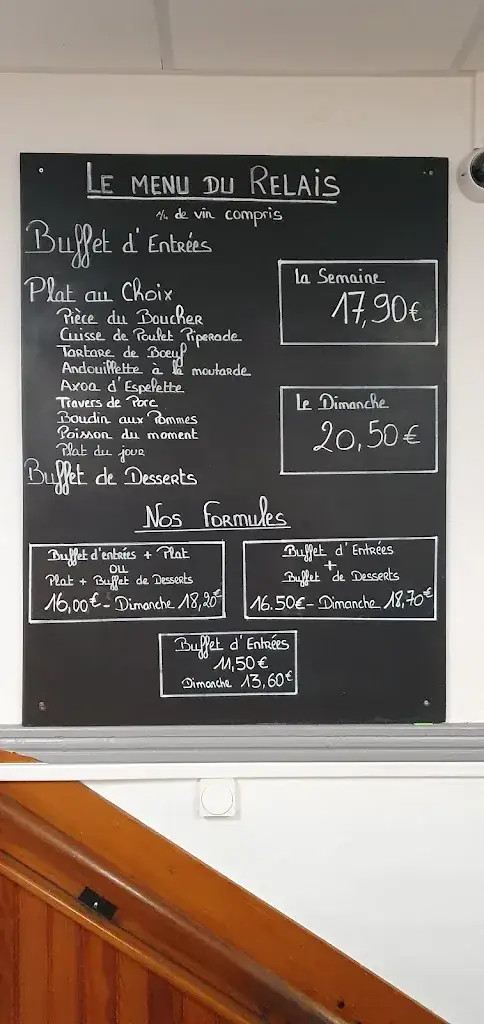 LE MENU DU RELAIS
1/4 de vin compris
Buffet d'Entrées
La Semaine
17,90€
Plat au Choix
Pièce du Boucher
Cuisse de Poulet Piperade
Tartare de Bœuf
Andouillette à la moutarde
Axoa d'Espelette
Travers de Porc
Boudin aux Pommes
Poisson du moment
Plat du jour
Le Dimanche
20,50€
Buffet de Desserts
Nos Formules
Buffet d'entrées + Plat
OU
Plat + Buffet de Desserts
16,00€ - Dimanche 18,20€
Buffet d'Entrées
+
Buffet de Desserts
16.50€ - Dimanche 18,70€
Buffet d'Entrées
11,50€
Dimanche 13,60€